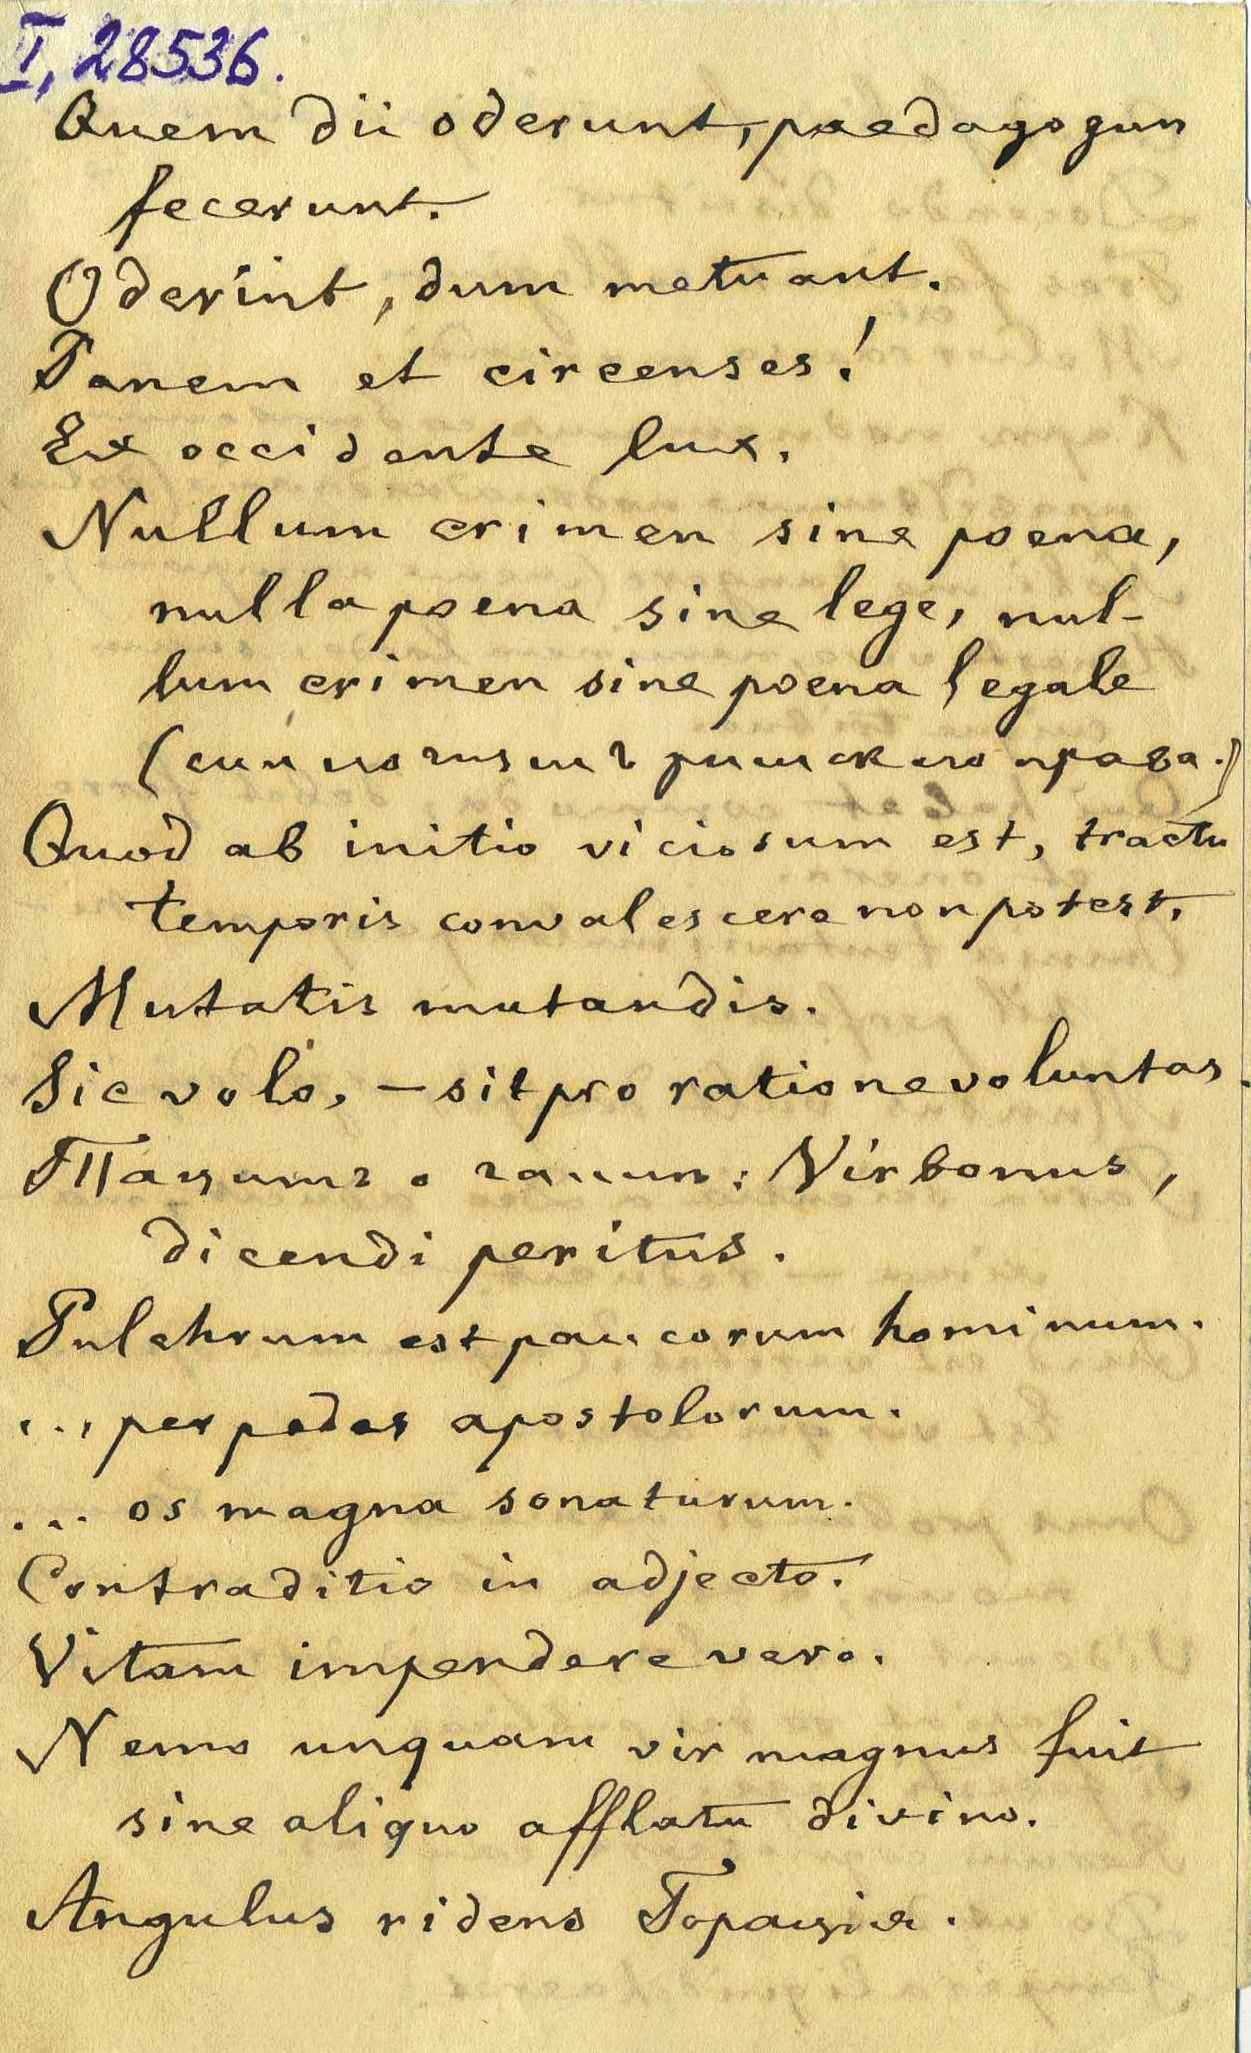 I, 28536.
Quem dii oderunt, paedagogum
fecerunt.
Oderint, dum metuant.
Panem et circenses!
Ex occidente lux.
Nullum crimen sine poena,
nulla poena sine lege, nul-
lum crimen sine poena legale
(римск права.)
Quod ab initio viciosum est, tractu
temporis convalescere non potest.
Mutatis mutandis.
Sic volo, – sit pro ratione voluntas.
Тацит о : Vir bonus,
dicendi peritus.
Pulchrum est paucorum hominum.
... per pedes apostolorum.
... os magna sonaturum.
Contraditio in adjecto.
Vitam impendere vero.
Nemo unquam vir magnus fuit
sine aliquo afflatu divino.
Angulus ridens Горация.